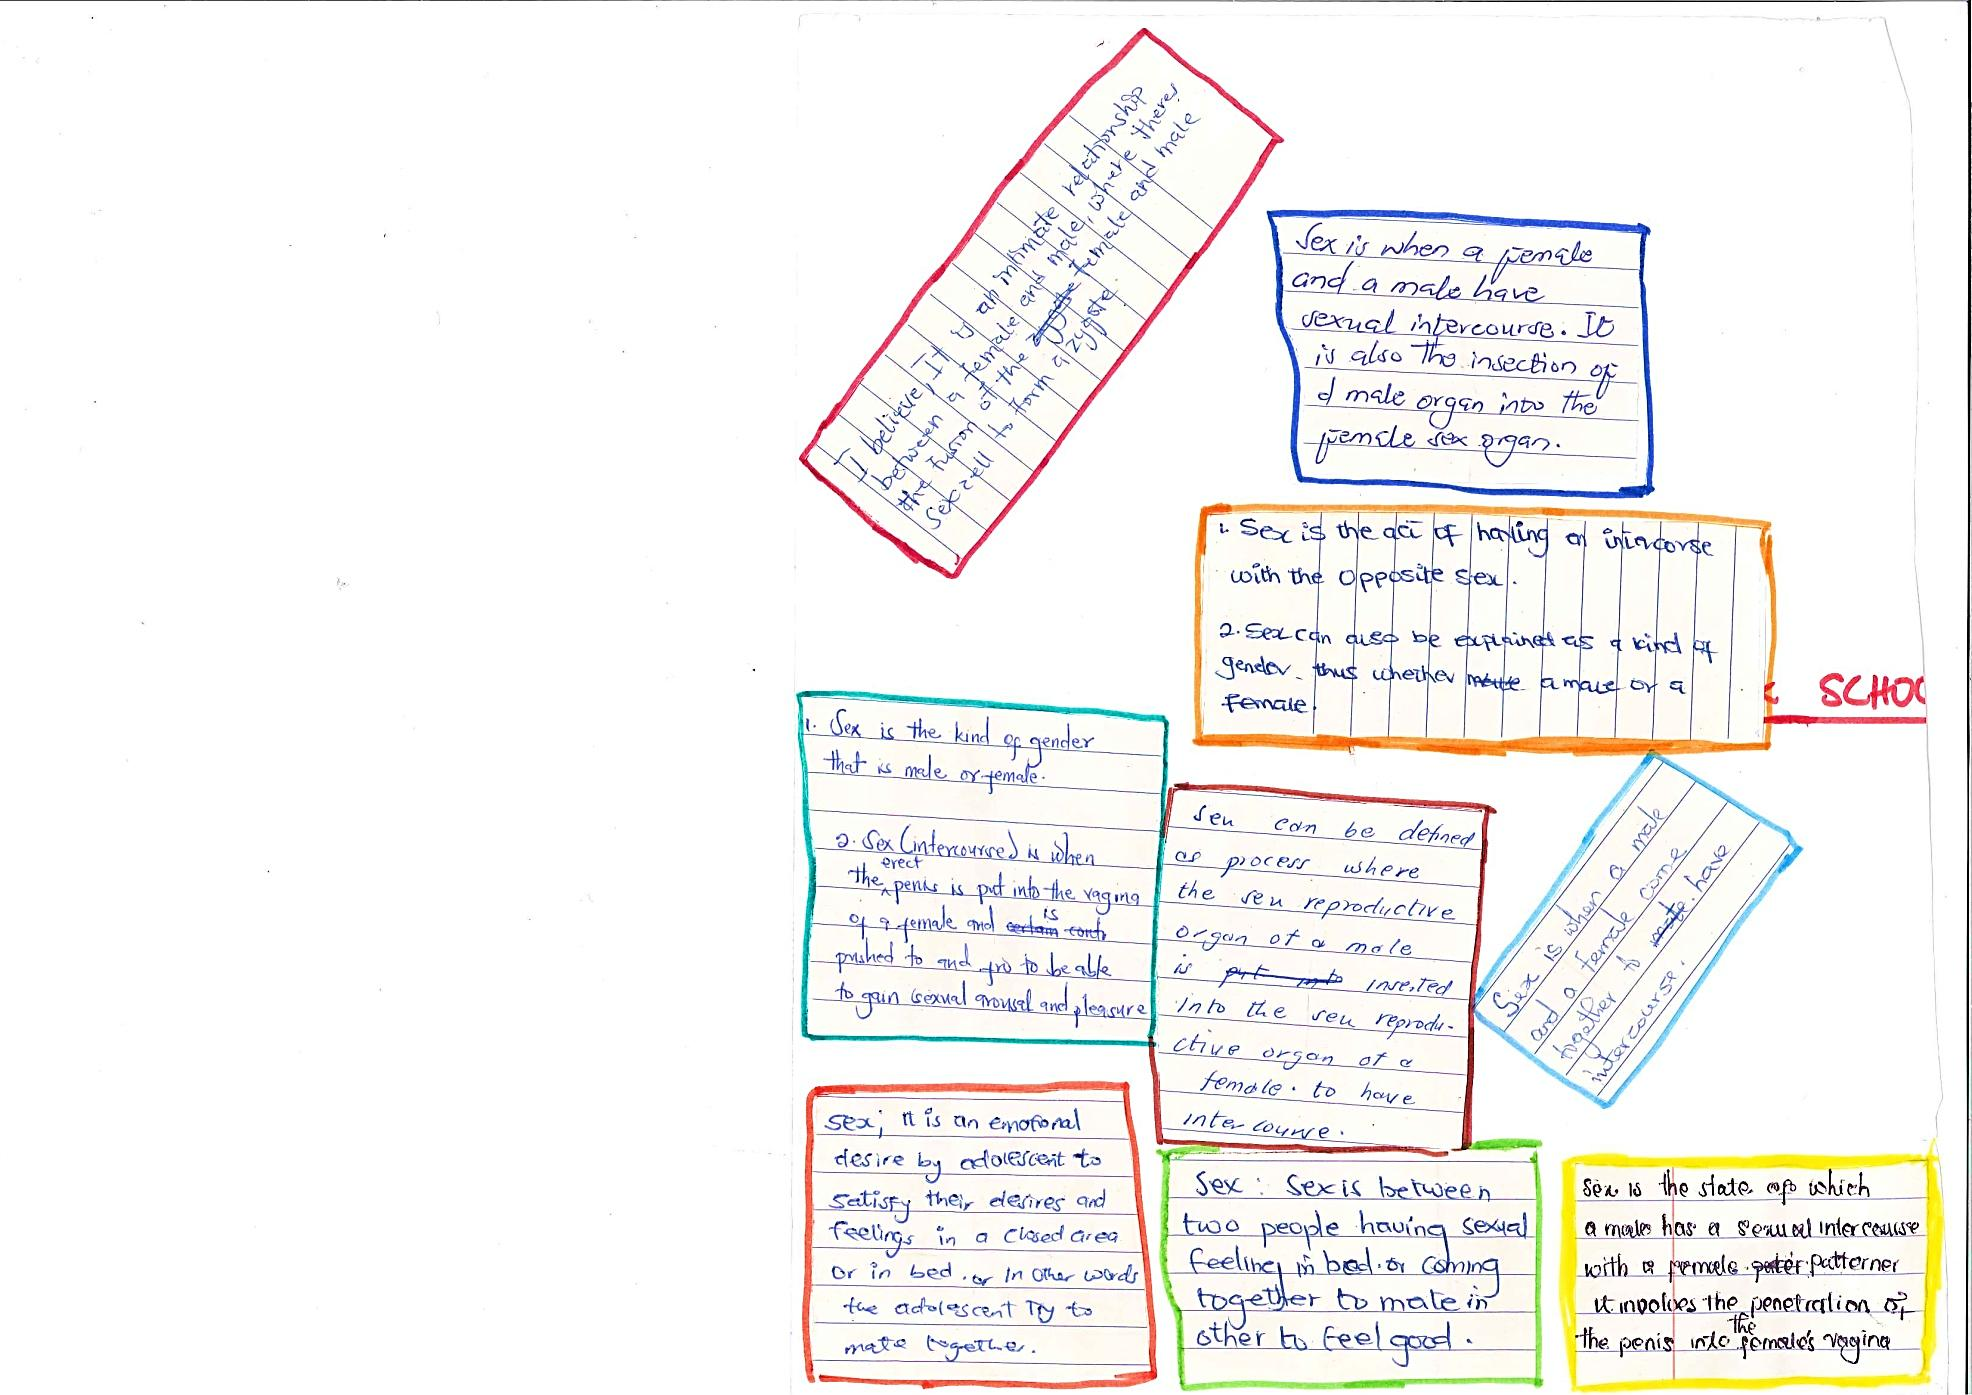 I believe, It is an intimate relationship
between a female and male, where theres
the fusion of the zygote female and male
sex cell to form a zygote.
Sex is when a female
and a male have
sexual intercourse. It
is also the insection of
d male organ into the
female sex organ.
1. Sex is the act of having an intercorse
with the opposite sex.
2. Sex can also be explained as a kind of
gender. thus whether male a male or a
female.
SCHOO
1. Sex is the kind of gender
that is male or female.
2. Sex (intercourse) is when
the erect penis is put into the vagina
of a female and certain contr is
pushed to and fro to be able
to gain sexual arousal and pleasure
Sex can be defined
as process where
the sex reproductive
organ of a male
is put into inserted
into the sex reprodu-
ctive organ of a
female. to have
intercourse.
Sex is when a male
and a female come
together to mate. have
intercourse.
sex; It is an emotional
desire by adolescent to
satisfy their desires and
feelings in a closed area
or in bed. or In other words
the adolescent Try to
mate together.
Sex : Sex is between
two people having sexual
feeling in bed. or coming
together to mate in
other to feel good.
Sex is the state of which
a male has a sexual intercourse
with a female patter patterner
it involves the penetration of
the penis into the female's vagina